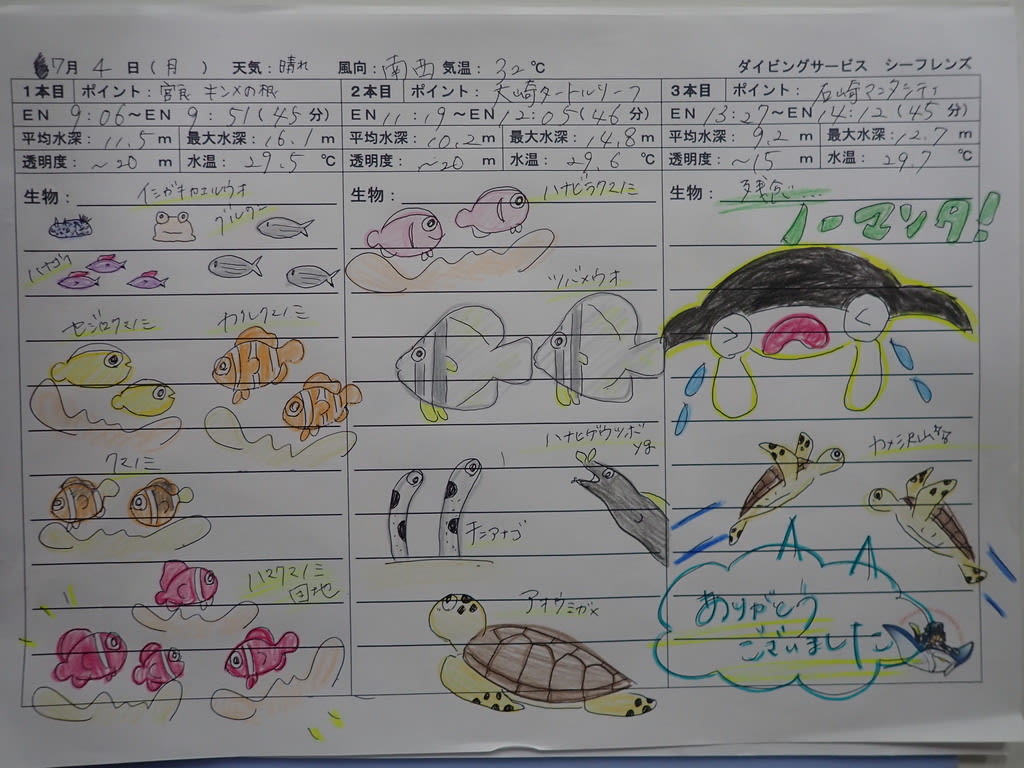 7月 4 日(月) 天気:晴れ 風向:南西 気温:32℃ ダイビングサービス シーフレンズ
1本目 ポイント:宮良 キンメの根
EN 9:06〜EN 9:51(45分)
平均水深:11.5m 最大水深:16.1m
透明度:~20m 水温:29.5℃
生物:イシガキカエルウオ
グルクン
ハナゴイ
セジロクマノミ カクレクマノミ
クマノミ
ハマクマノミ
団地
2本目 ポイント:大崎タートルリーフ
EN 11:19〜EN 12:05(46分)
平均水深:10.2m 最大水深:14.8m
透明度:~20m 水温:29.6℃
生物:ハナビラクマノミ
ツバメウオ
ハナヒゲウツボ
yg
チンアナゴ
アオウミガメ
3本目 ポイント:石崎マンタシティ
EN 13:27〜EN 14:12(45分)
平均水深:9.2m 最大水深:12.7m
透明度:~15m 水温:29.7℃
生物:残念…
ノーマンタ!
カメ沢山
ありがとう
ございました